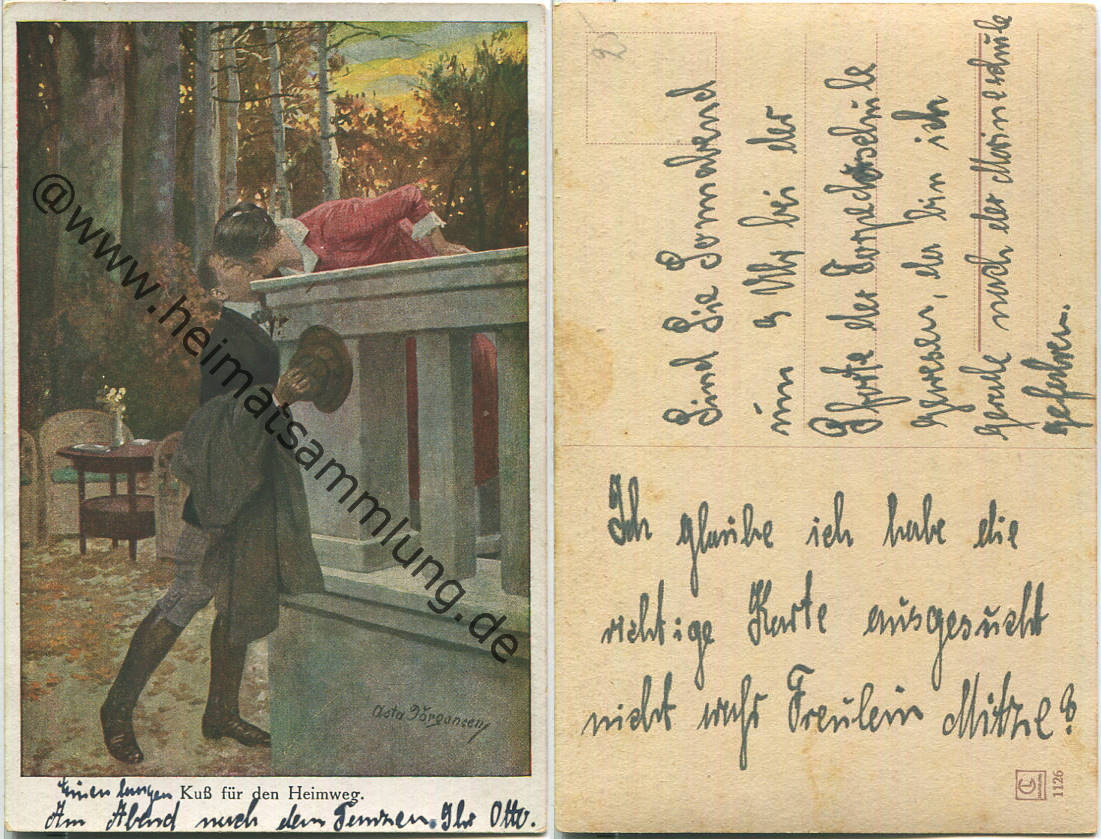 @www.heimatsammlung.de
Asta Jörgensen
Einen langen Kuß für den Heimweg.
Am Abend nach dem Tennzen. Ihr Otto.
2
Sind Sie Sonnabend
um 9 Uhr bei der
Pforte der Torpedoschule
gewesen, da bin ich
gerade nach der Marineschule
gefahren.
Ich glaube ich habe die
richtige Karte ausgesucht
nicht wahr Freulein Mitzel?
1126